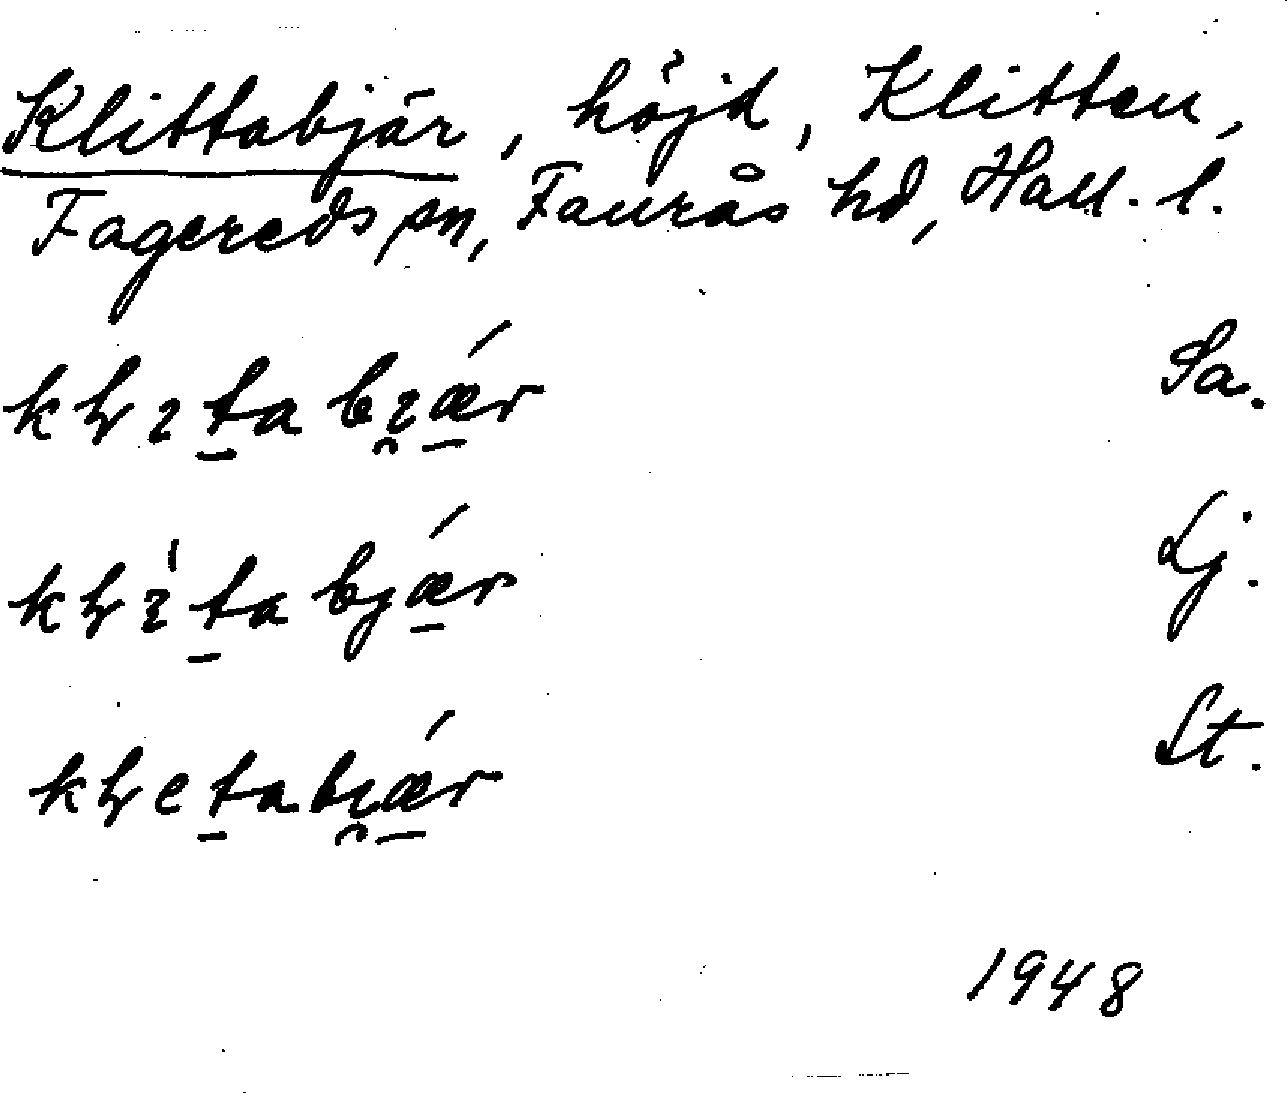 Klittabjär, höjd, Klitten,
Fagereds sn, Faurås hd, Hall. l.
Sa.
Lj.
St.
1948